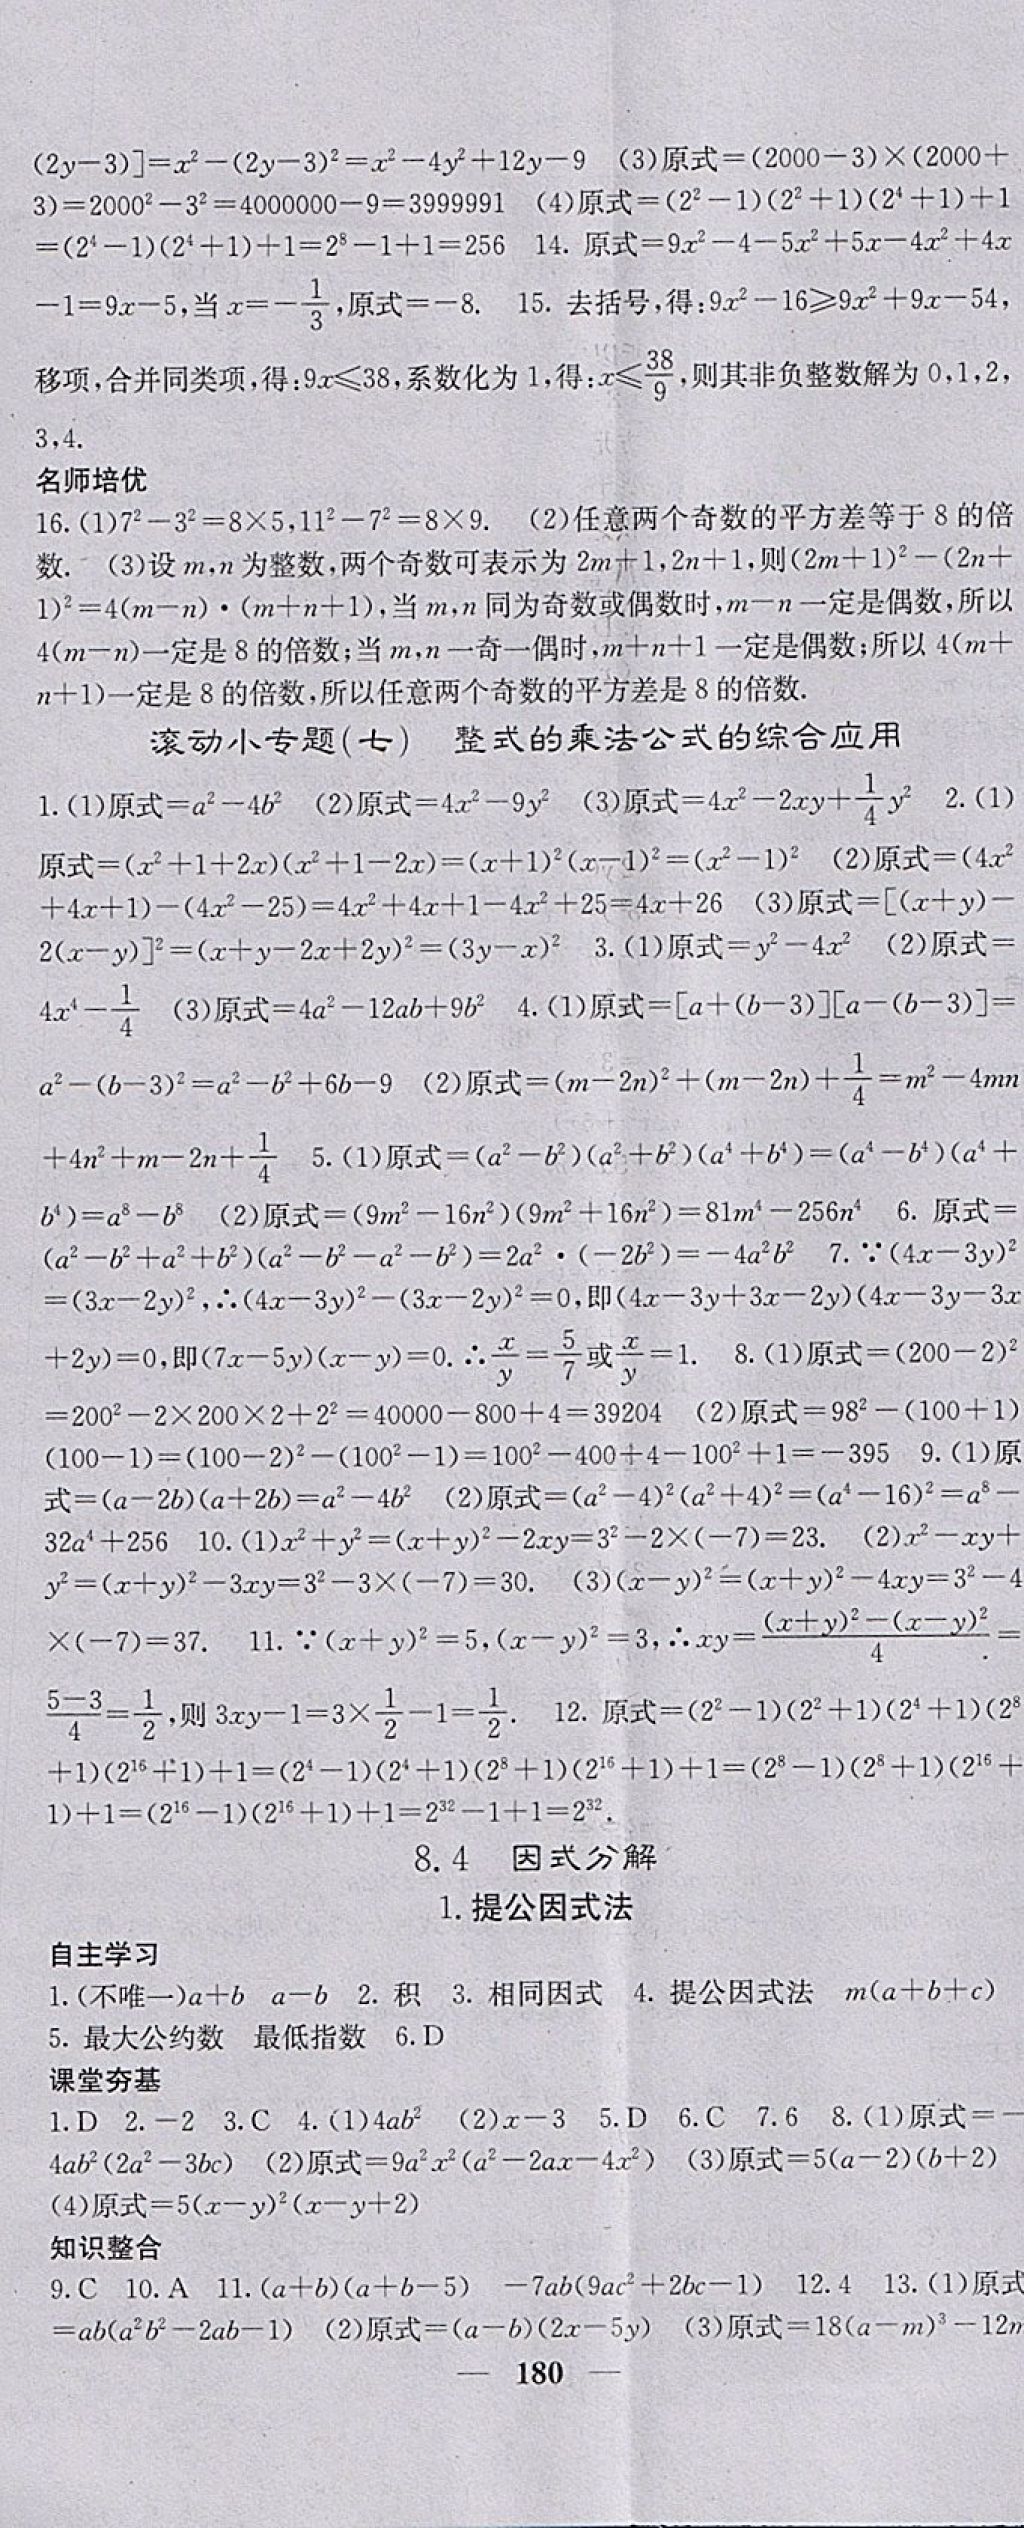 (2y－3)]＝x²－(2y－3)²＝x²－4y²＋12y－9　(3)原式＝(2000－3)×(2000＋
3)＝2000²－3²＝4000000－9＝3999991　(4)原式＝(2²－1)(2²＋1)(2⁴＋1)＋1
＝(2⁴－1)(2⁴＋1)＋1＝2⁸－1＋1＝256　14. 原式＝9x²－4－5x²＋5x－4x²＋4x
－1＝9x－5,当 x＝－1/3,原式＝－8.　15. 去括号,得:9x²－16≥9x²＋9x－54,
移项,合并同类项,得:9x≤38,系数化为 1,得:x≤38/9,则其非负整数解为 0,1,2,
3,4.
名师培优
16.(1)7²－3²＝8×5,11²－7²＝8×9.　(2)任意两个奇数的平方差等于 8 的倍
数.　(3)设 m,n 为整数,两个奇数可表示为 2m＋1,2n＋1,则(2m＋1)²－(2n＋
1)²＝4(m－n)·(m＋n＋1),当 m,n 同为奇数或偶数时,m－n 一定是偶数,所以
4(m－n)一定是 8 的倍数;当 m,n 一奇一偶时,m＋n＋1 一定是偶数;所以 4(m＋
n＋1)一定是 8 的倍数,所以任意两个奇数的平方差是 8 的倍数.
滚动小专题(七)　整式的乘法公式的综合应用
1.(1)原式＝a²－4b²　(2)原式＝4x²－9y²　(3)原式＝4x²－2xy＋1/4y²　2.(1)
原式＝(x²＋1＋2x)(x²＋1－2x)＝(x＋1)²(x－1)²＝(x²－1)²　(2)原式＝(4x²
＋4x＋1)－(4x²－25)＝4x²＋4x＋1－4x²＋25＝4x＋26　(3)原式＝[(x＋y)－
2(x－y)]²＝(x＋y－2x＋2y)²＝(3y－x)²　3.(1)原式＝y²－4x²　(2)原式＝
4x⁴－1/4　(3)原式＝4a²－12ab＋9b²　4.(1)原式＝[a＋(b－3)][a－(b－3)]＝
a²－(b－3)²＝a²－b²＋6b－9　(2)原式＝(m－2n)²＋(m－2n)＋1/4＝m²－4mn
＋4n²＋m－2n＋1/4　5.(1)原式＝(a²－b²)(a²＋b²)(a⁴＋b⁴)＝(a⁴－b⁴)(a⁴＋
b⁴)＝a⁸－b⁸　(2)原式＝(9m²－16n²)(9m²＋16n²)＝81m⁴－256n⁴　6. 原式＝
(a²－b²＋a²＋b²)(a²－b²－a²－b²)＝2a²·(－2b²)＝－4a²b²　7.∵(4x－3y)²
＝(3x－2y)²,∴(4x－3y)²－(3x－2y)²＝0,即(4x－3y＋3x－2y)(4x－3y－3x
＋2y)＝0,即(7x－5y)(x－y)＝0.∴x/y＝5/7或x/y＝1.　8.(1)原式＝(200－2)²
＝200²－2×200×2＋2²＝40000－800＋4＝39204　(2)原式＝98²－(100＋1)
(100－1)＝(100－2)²－(100²－1)＝100²－400＋4－100²＋1＝－395　9.(1)原
式＝(a－2b)(a＋2b)＝a²－4b²　(2)原式＝(a²－4)²(a²＋4)²＝(a⁴－16)²＝a⁸－
32a⁴＋256　10.(1)x²＋y²＝(x＋y)²－2xy＝3²－2×(－7)＝23.　(2)x²－xy＋
y²＝(x＋y)²－3xy＝3²－3×(－7)＝30.　(3)(x－y)²＝(x＋y)²－4xy＝3²－4
×(－7)＝37.　11.∵(x＋y)²＝5,(x－y)²＝3,∴xy＝((x＋y)²－(x－y)²)/4＝
(5－3)/4＝1/2,则 3xy－1＝3×1/2－1＝1/2.　12. 原式＝(2²－1)(2²＋1)(2⁴＋1)(2⁸
＋1)(2¹⁶＋1)＋1＝(2⁴－1)(2⁴＋1)(2⁸＋1)(2¹⁶＋1)＋1＝(2⁸－1)(2⁸＋1)(2¹⁶＋
1)＋1＝(2¹⁶－1)(2¹⁶＋1)＋1＝2³²－1＋1＝2³².
8.4　因式分解
1.提公因式法
自主学习
1.(不唯一)a＋b　a－b　2. 积　3. 相同因式　4. 提公因式法　m(a＋b＋c)
5. 最大公约数　最低指数　6.D
课堂夯基
1.D　2.－2　3.C　4.(1)4ab²　(2)x－3　5.D　6.C　7.6　8.(1)原式＝－
4ab²(2a²－3bc)　(2)原式＝9a²x²(a²－2ax－4x²)　(3)原式＝5(a－2)(b＋2)
(4)原式＝5(x－y)²(x－y＋2)
知识整合
9.C　10.A　11.(a＋b)(a＋b－5)　－7ab(9ac²＋2bc－1)　12.4　13.(1)原式
＝ab(a²b²－2ab－1)　(2)原式＝(a－b)(2x－5y)　(3)原式＝18(a－m)³－12m
— 180 —